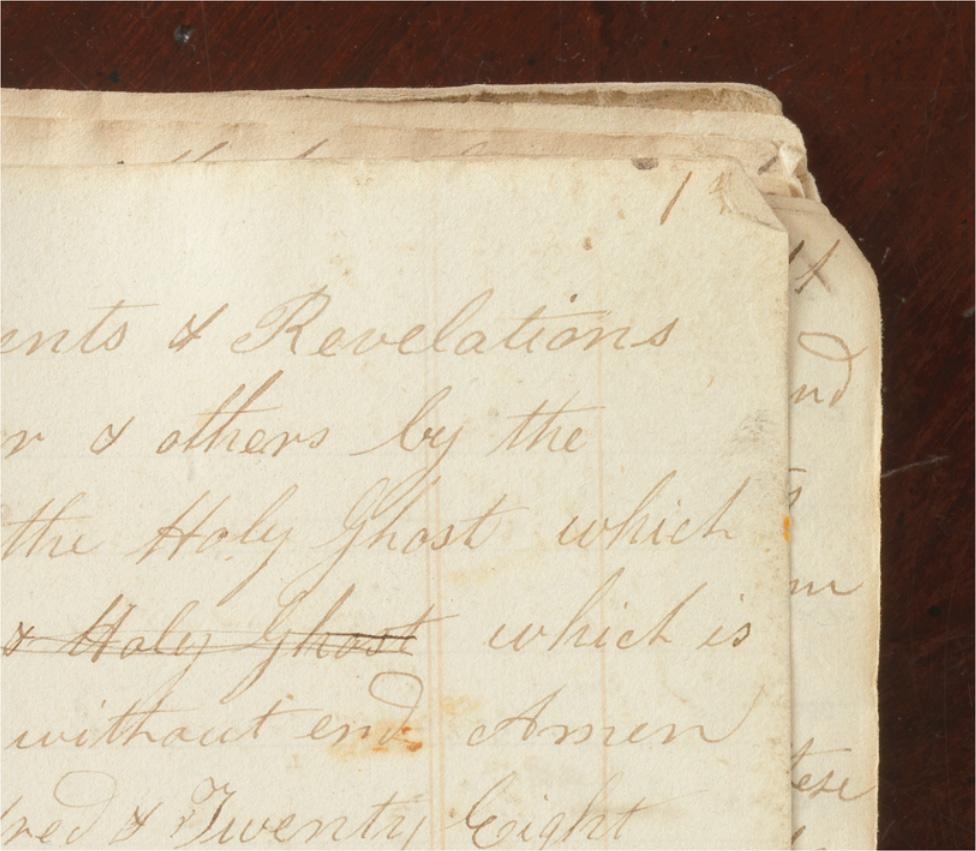 1
ents & Revelations
r & others by the
the Holy Ghost which
& Holy Ghost which is
without end Amen
red & Twenty Eight
nd
s
m
tese